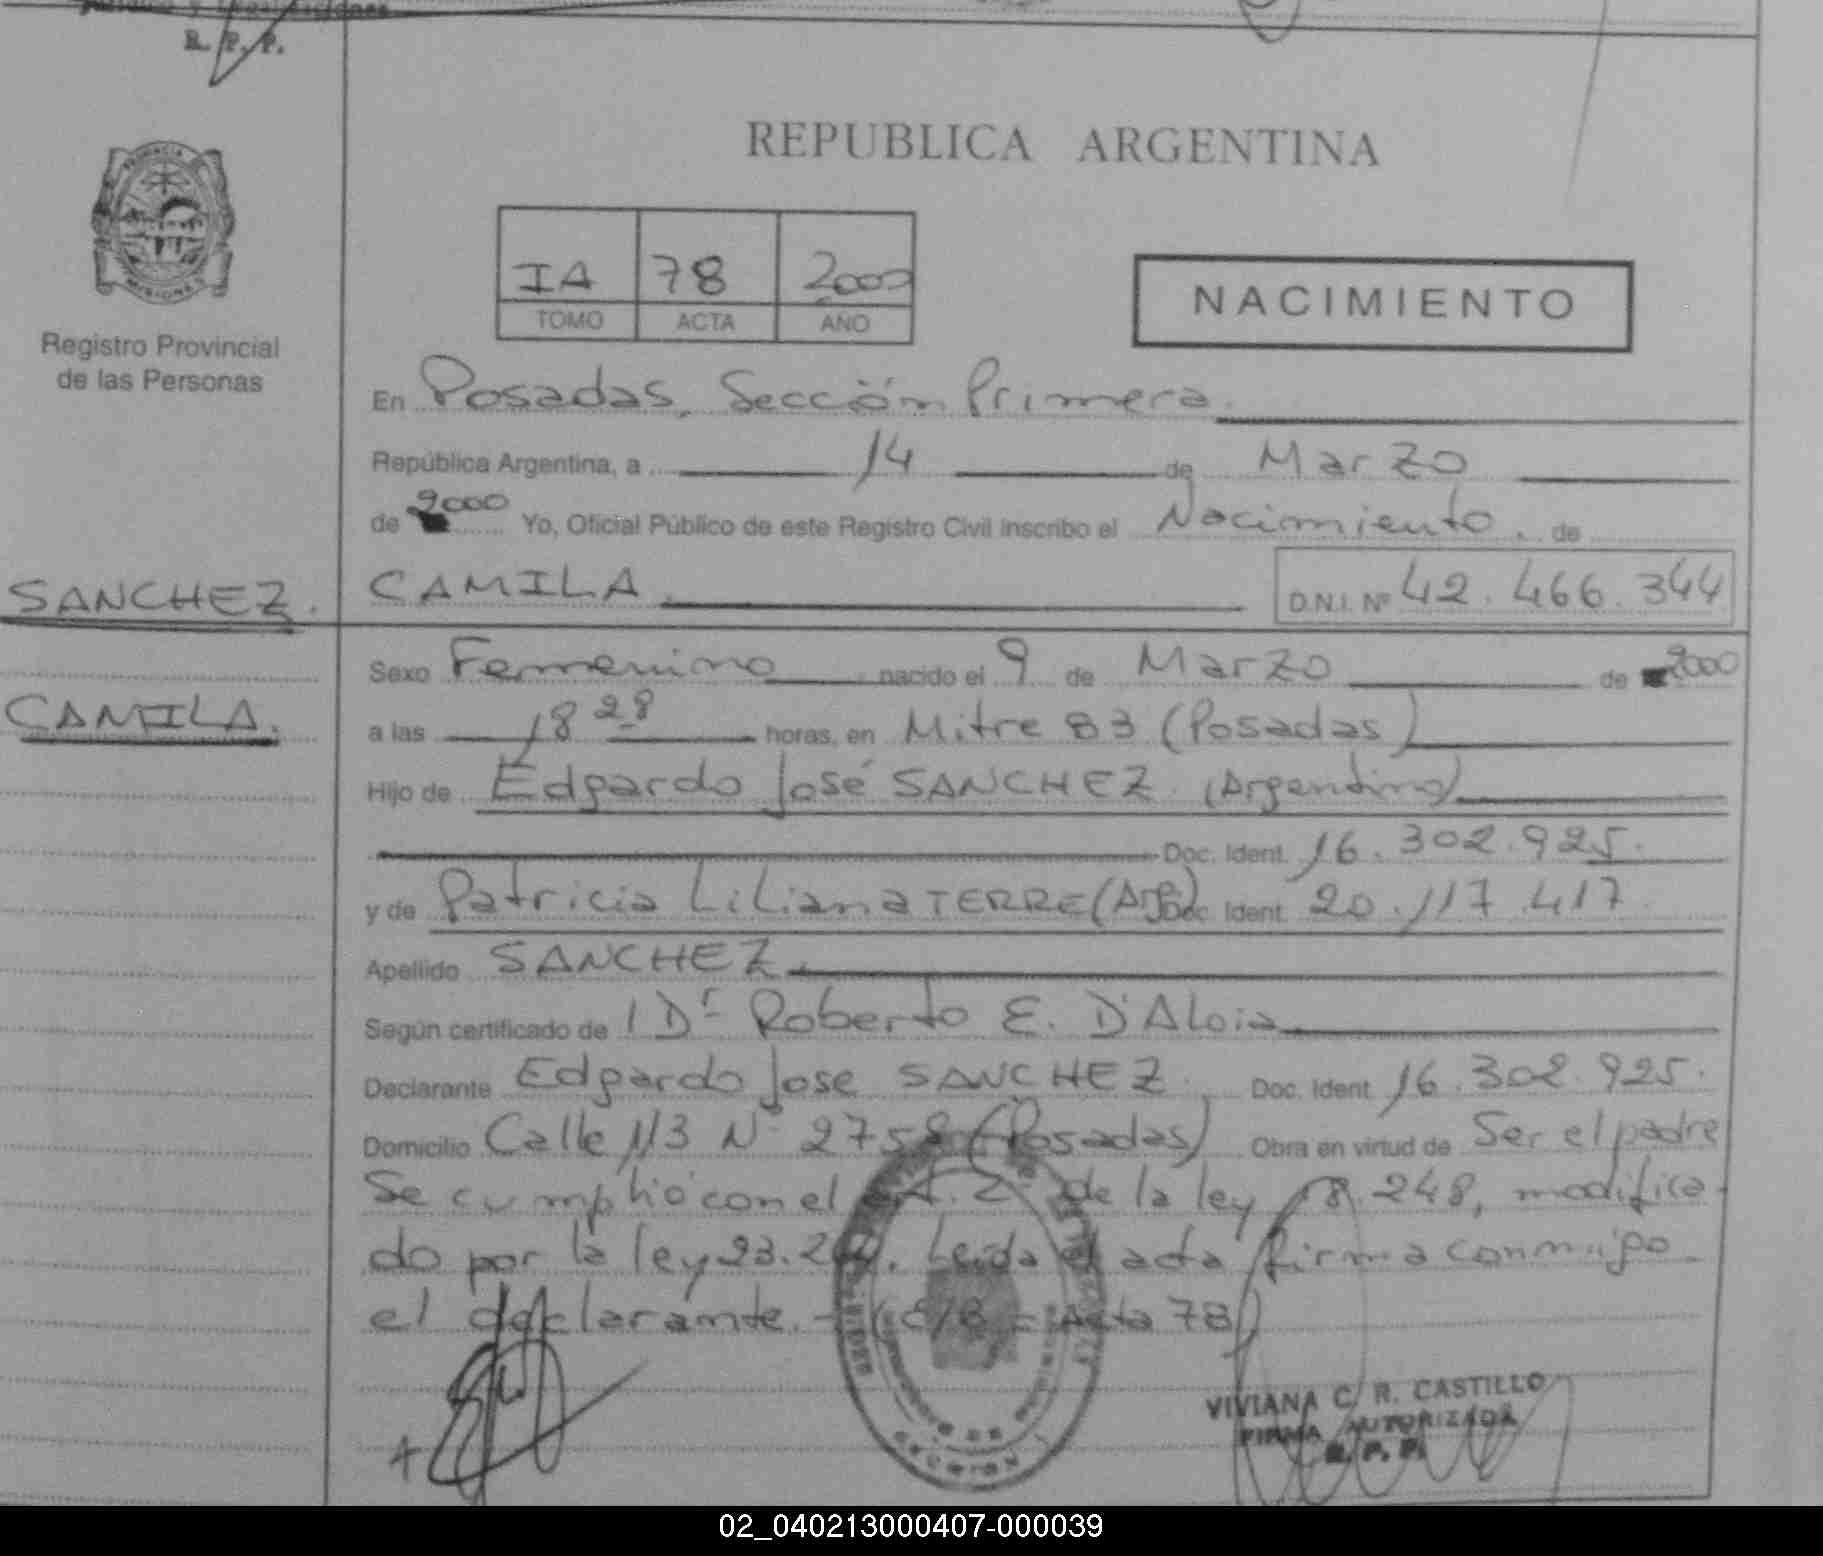 R. P. P.
REPUBLICA ARGENTINA
PROVINCIA
MISIONES
Registro Provincial
de las Personas
IA 78 2000
TOMO ACTA AÑO
NACIMIENTO
En Posadas, Sección Primera.
República Argentina, a 14 de Marzo
de 2000 Yo, Oficial Público de este Registro Civil inscribo el Nacimiento. de
SANCHEZ. CAMILA D.N.I. Nº 42.466.344
Sexo Femenino nacido el 9 de Marzo de 2000
CAMILA. a las 18 28 horas, en Mitre 83 (Posadas)
Hijo de Edgardo José SANCHEZ. (Argentino)
Doc. Ident. 16.302.925.
y de Patricia Liliana TERRE (Arg) Doc. Ident. 20.117.417.
Apellido SANCHEZ.
Según certificado de 1 Dr Roberto E. D'Aloia
Declarante Edgardo Jose SANCHEZ. Doc. Ident. 16.302.925.
Domicilio Calle 113 Nº 2758 (Posadas) Obra en virtud de Ser el padre
Se cumplió con el Art. 2 de la ley 18.248, modifica-
do por la ley 23. Leida el acta firma conmigo
el declarante. - Acta 78)
VIVIANA C. R. CASTILLO
FIRMA AUTORIZADA
R. P. P.
02_040213000407-000039